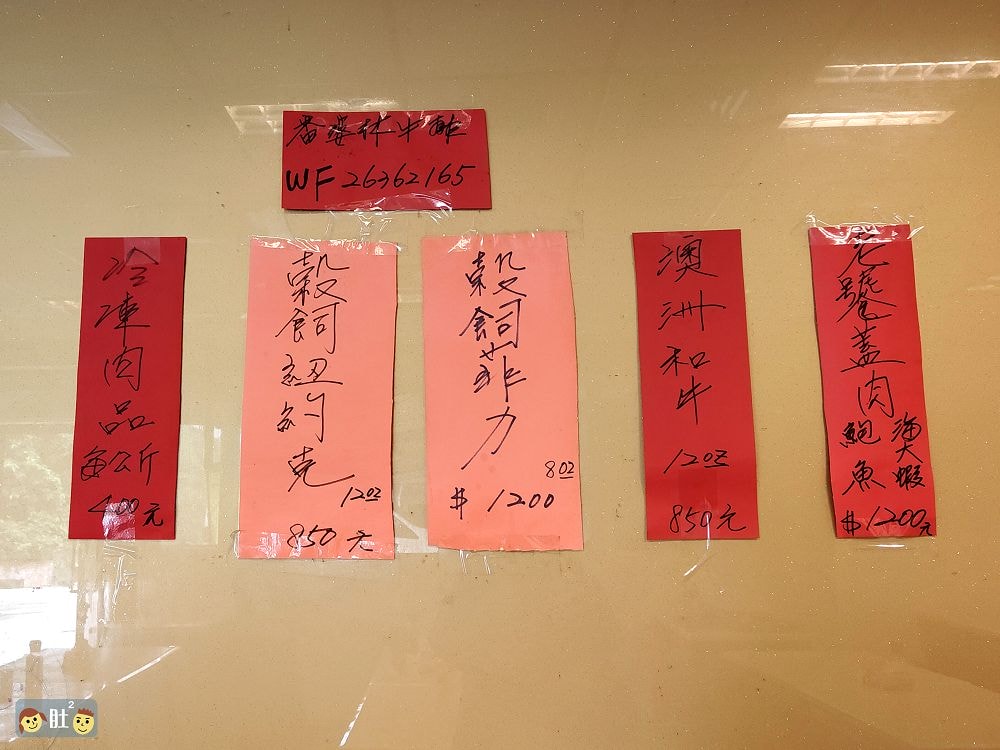 番婆林牛排
WF 26362165
冷凍肉品
每公斤
400元
穀飼紐約克
12oz
850元
穀飼菲力
8oz
$1200
澳洲和牛
12oz
850元
老饕蓋肉
鮑魚
海大蝦
$1200元
肚2